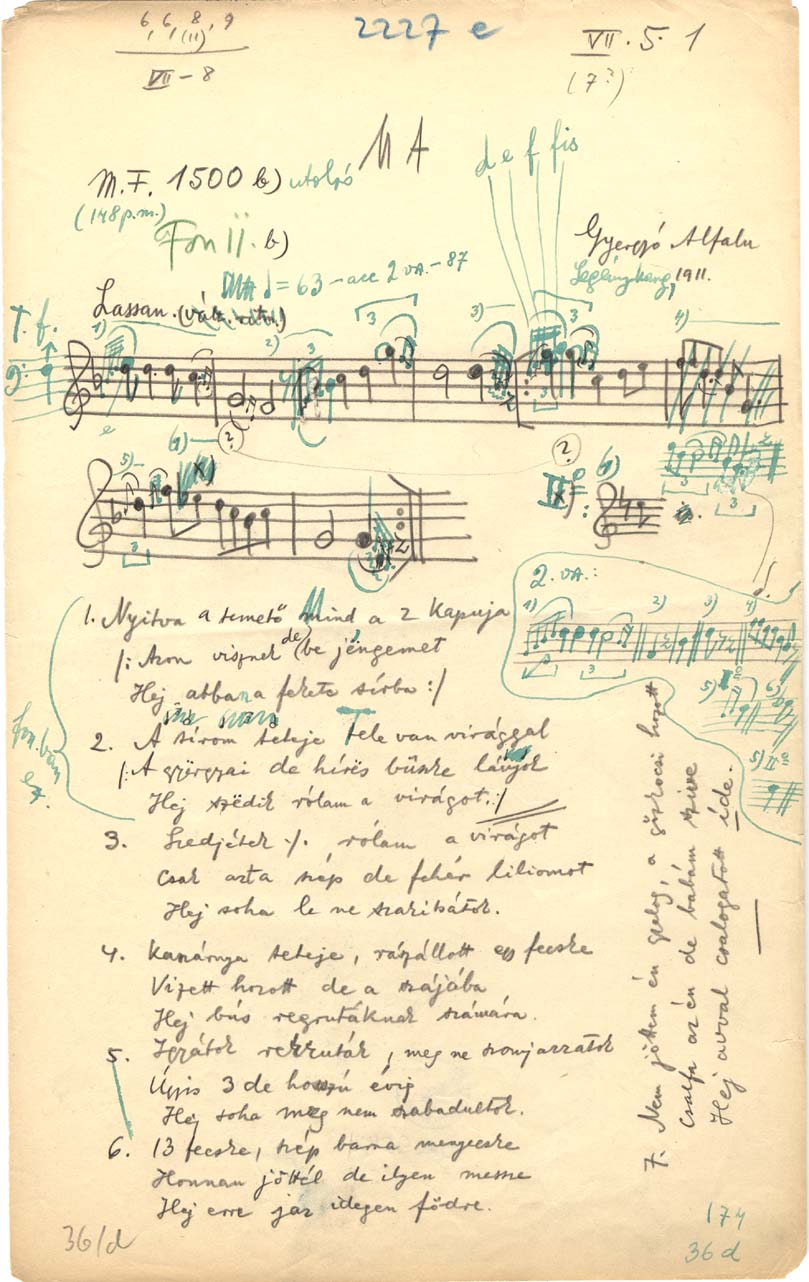 6, 6, 8, 9
(11)
VII - 8
2227 e
VII. 5. 1
(7?)
MA
d e f fis
M.F. 1500 b) utolsó
(148 p.m.)
Fon II. b)
Gyergyó Alfalu
1911.
= 63 - acc 2 va. - 87
Lassan.
T. f.
1)
2)
3
3
3)
3
3
4)
e
5)
3
6)
x)
?
?
II
x)
6)
3
3
3
2. va.:
1)
2)
3)
4)
3
5)
6)
5) II
1. Nyitva a temető mind a 2 kapuja
/: Azon visznek de be jëngemet
Hej abbana fekete sírba :/
2. A sírom teteje tele van virággal
/: A györgyai de hírës büszke lávjok
Hej szëdik rólam a virágot. :/
3. Szedjétek ./. rólam a virágot
Csak azt a szép de fehér liliomot
Hej soha le ne szakítsátok.
4. Kaszárnya teteje, rászállott egy fecske
Vizett hozott de a szájába
Hej bús regrutáknak számára.
5. Igyátok rekruták, meg ne szomjazzatok
Úgyis 3 de hosszú évig
Hej soha meg nem szabadultok.
6. 13 fecske, szép barna menyecske
Honnan jöttél de ilyen messze
Hej erre jár idegen födre.
7. Nem jöttem én gyalog, a gőzkocsi hozott
Csalfa az én de babám szive
Hej avval csalogatott ide.
36/d
174
36 d